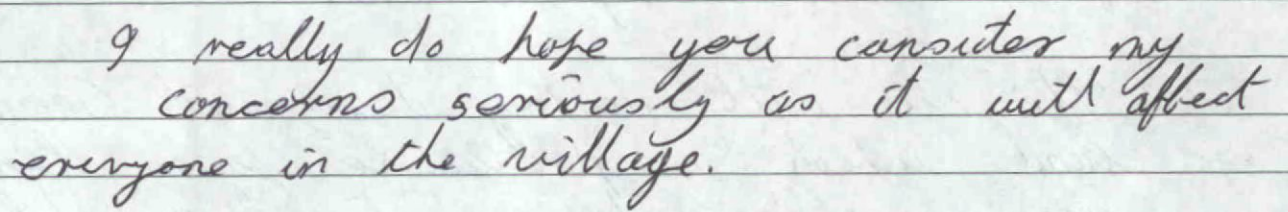 I really do hope you consider my
concerns seriously as it will affect
everyone in the village.